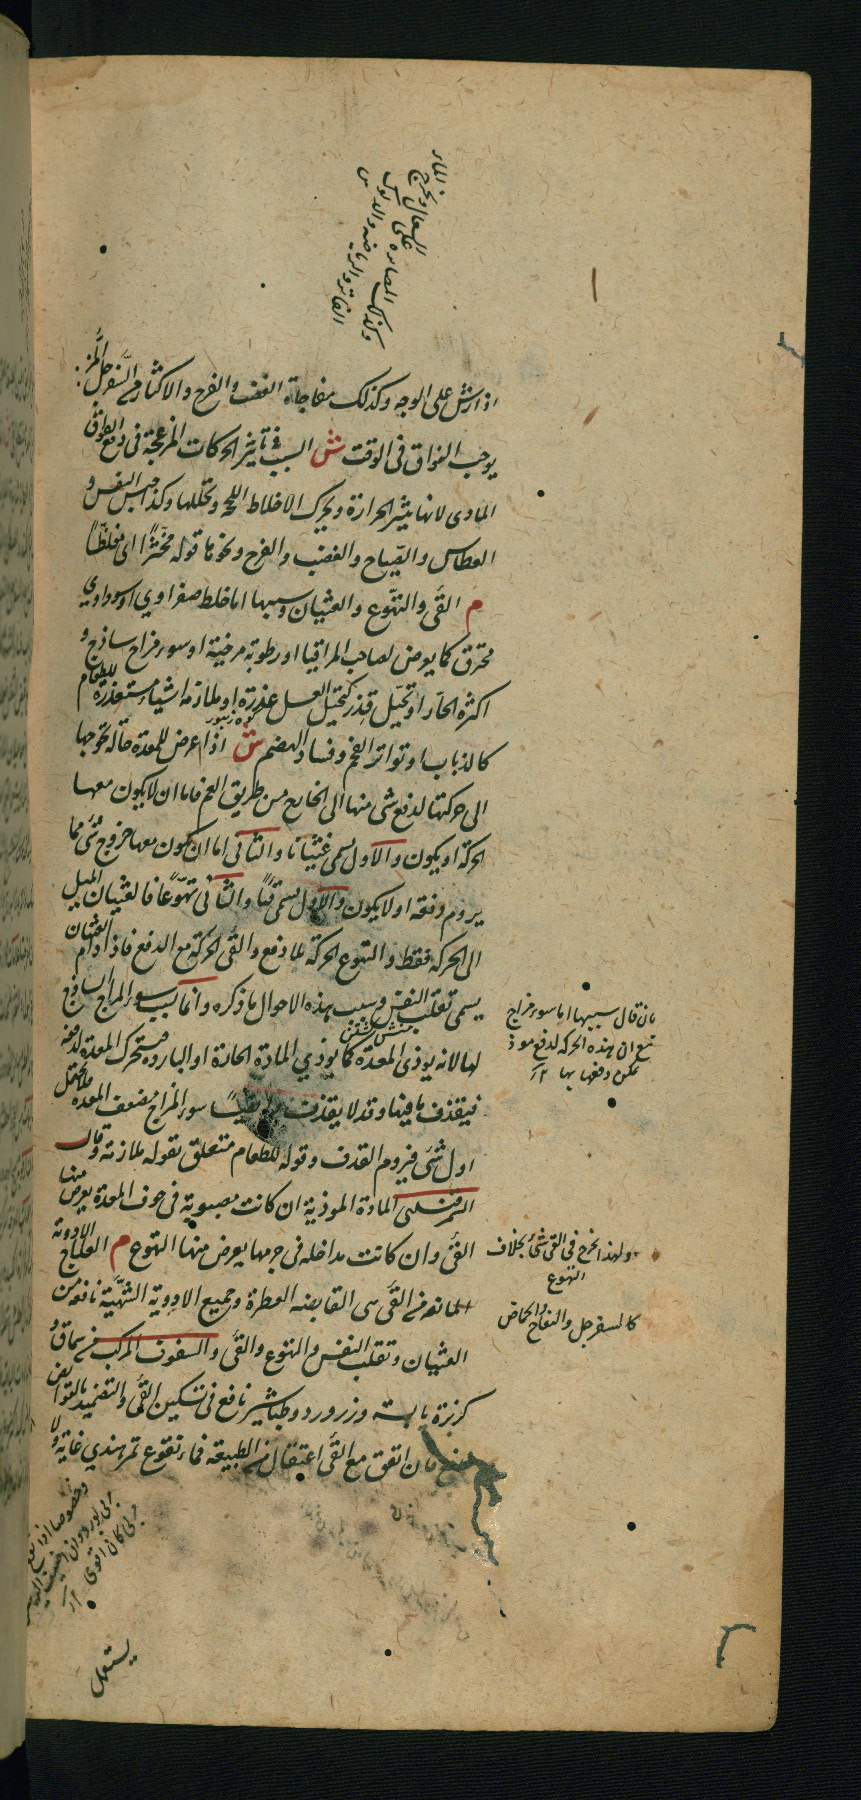 اذا رش على الوجه وكذلك مفاجاة الغضب والفرح والاكثار من السفرجل المز
يوجب الفواق فى الوقت ش السبب فى تاثير الحركات المزعجة فى دفع الفواق
المادى لانها يثير الحرارة ويحرك الاخلاط اللحجة وتحللها وكذا حبس النفس و
العطاس والصياح والغضب والفرح ونحوها قوله مخثرا اى مغلظا
م القئ والتهوع والغثيان وسببها اما خلط صفراوي او سوداوي
محترق كما يعرض لصاحب المراقيا او رطوبة مرخية او سوء مزاج ساذج و
اكثره الحار او تخيل قذر كتخيل العسل عذرة او ملازمة اشياء مستقذرة للطعام
كالذباب او تواتر التخم وفساد الهضم ش اذا عرض للمعدة حالة تحوجها
الى حركتها لدفع شى منها الى الخارج من طريق الفم فاما ان لا يكون معها
الحركة او يكون والاول يسمى غثيانا والثانى اما ان يكون معها خروج شئ مما
يروم دفعه او لا يكون والاول يسمى قيئا والثانى تهوعا فالغثيان الميل
الى الحركة فقط والتهوع الحركة بلا دفع والقئ الحركة مع الدفع فاذا دام الغثيان
يسمى تقلب النفس وسبب هذه الاحوال ما ذكره وانما يسبب سوء المزاج الساذج
لها لانه يوذى المعدة كما يوذي المادة الحادة او الباردة فيتحرك المعدة لدفعه
فيقذف ما فيها وقد لا يقذف وايضا سوء المزاج يضعف المعدة فلا يحتمل
اول شئ فيروم القذف وقوله للطعام متعلق بقوله ملازمة وقال
السمرقندى المادة الموذية ان كانت مصبوبة فى جوف المعدة يعرض منها
القئ وان كانت مداخلة فى جرمها يعرض منها التهوع م العلاج الادوية
المانعة من القئ هى القابضة العطرة وجميع الادوية الشهية نافعة من
الغثيان وتقلب النفس والتهوع والقئ والسفوف المركب من سماق و
كزبرة يابسة وزرورد وطباشير نافع فى تسكين القئ والتضميد بالقوابض
فان اتفق مع القئ اعتقال من الطبيعة فماء نقوع تمر هندي غاية ولا
فان قال سببها اما سوء مزاج
مع ان هذه الحركة لدفع موذ
يمكن دفعها بها
ولهذا لخرج فى القئ شئ بخلاف
التهوع
كالسفرجل والتفاح والحماض
يستعمل